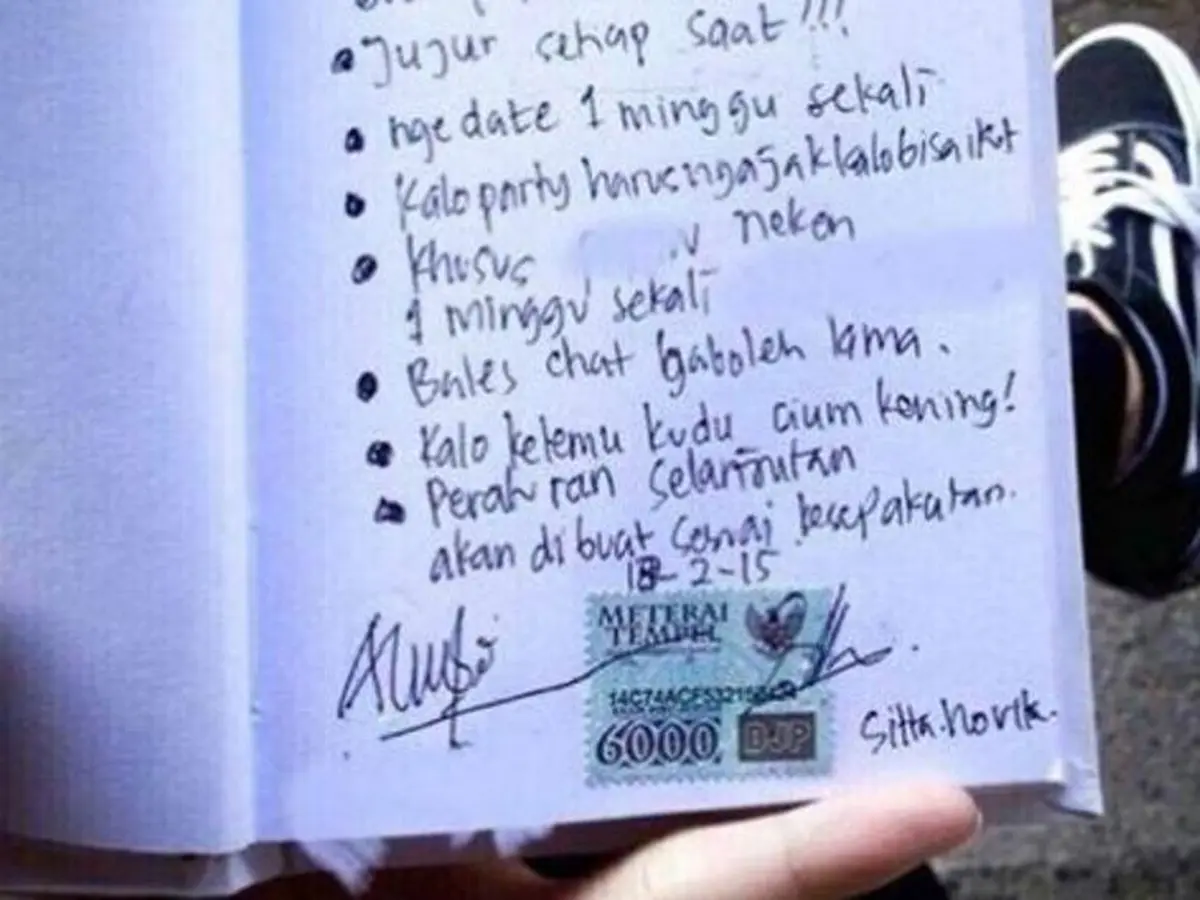 Jujur setiap saat!!!
ngedate 1 minggu sekali
Kalo party harus ngajak kalo bisa ikt
Khusus nekan
1 minggu sekali
Bales chat gaboleh lama.
Kalo ketemu kudu cium kening!
Peraturan selanjutan
akan dibuat sesuai kesepakatan.
18-2-15
METERAI
TEMPEL
6000 DJP
Sitta.Novik.